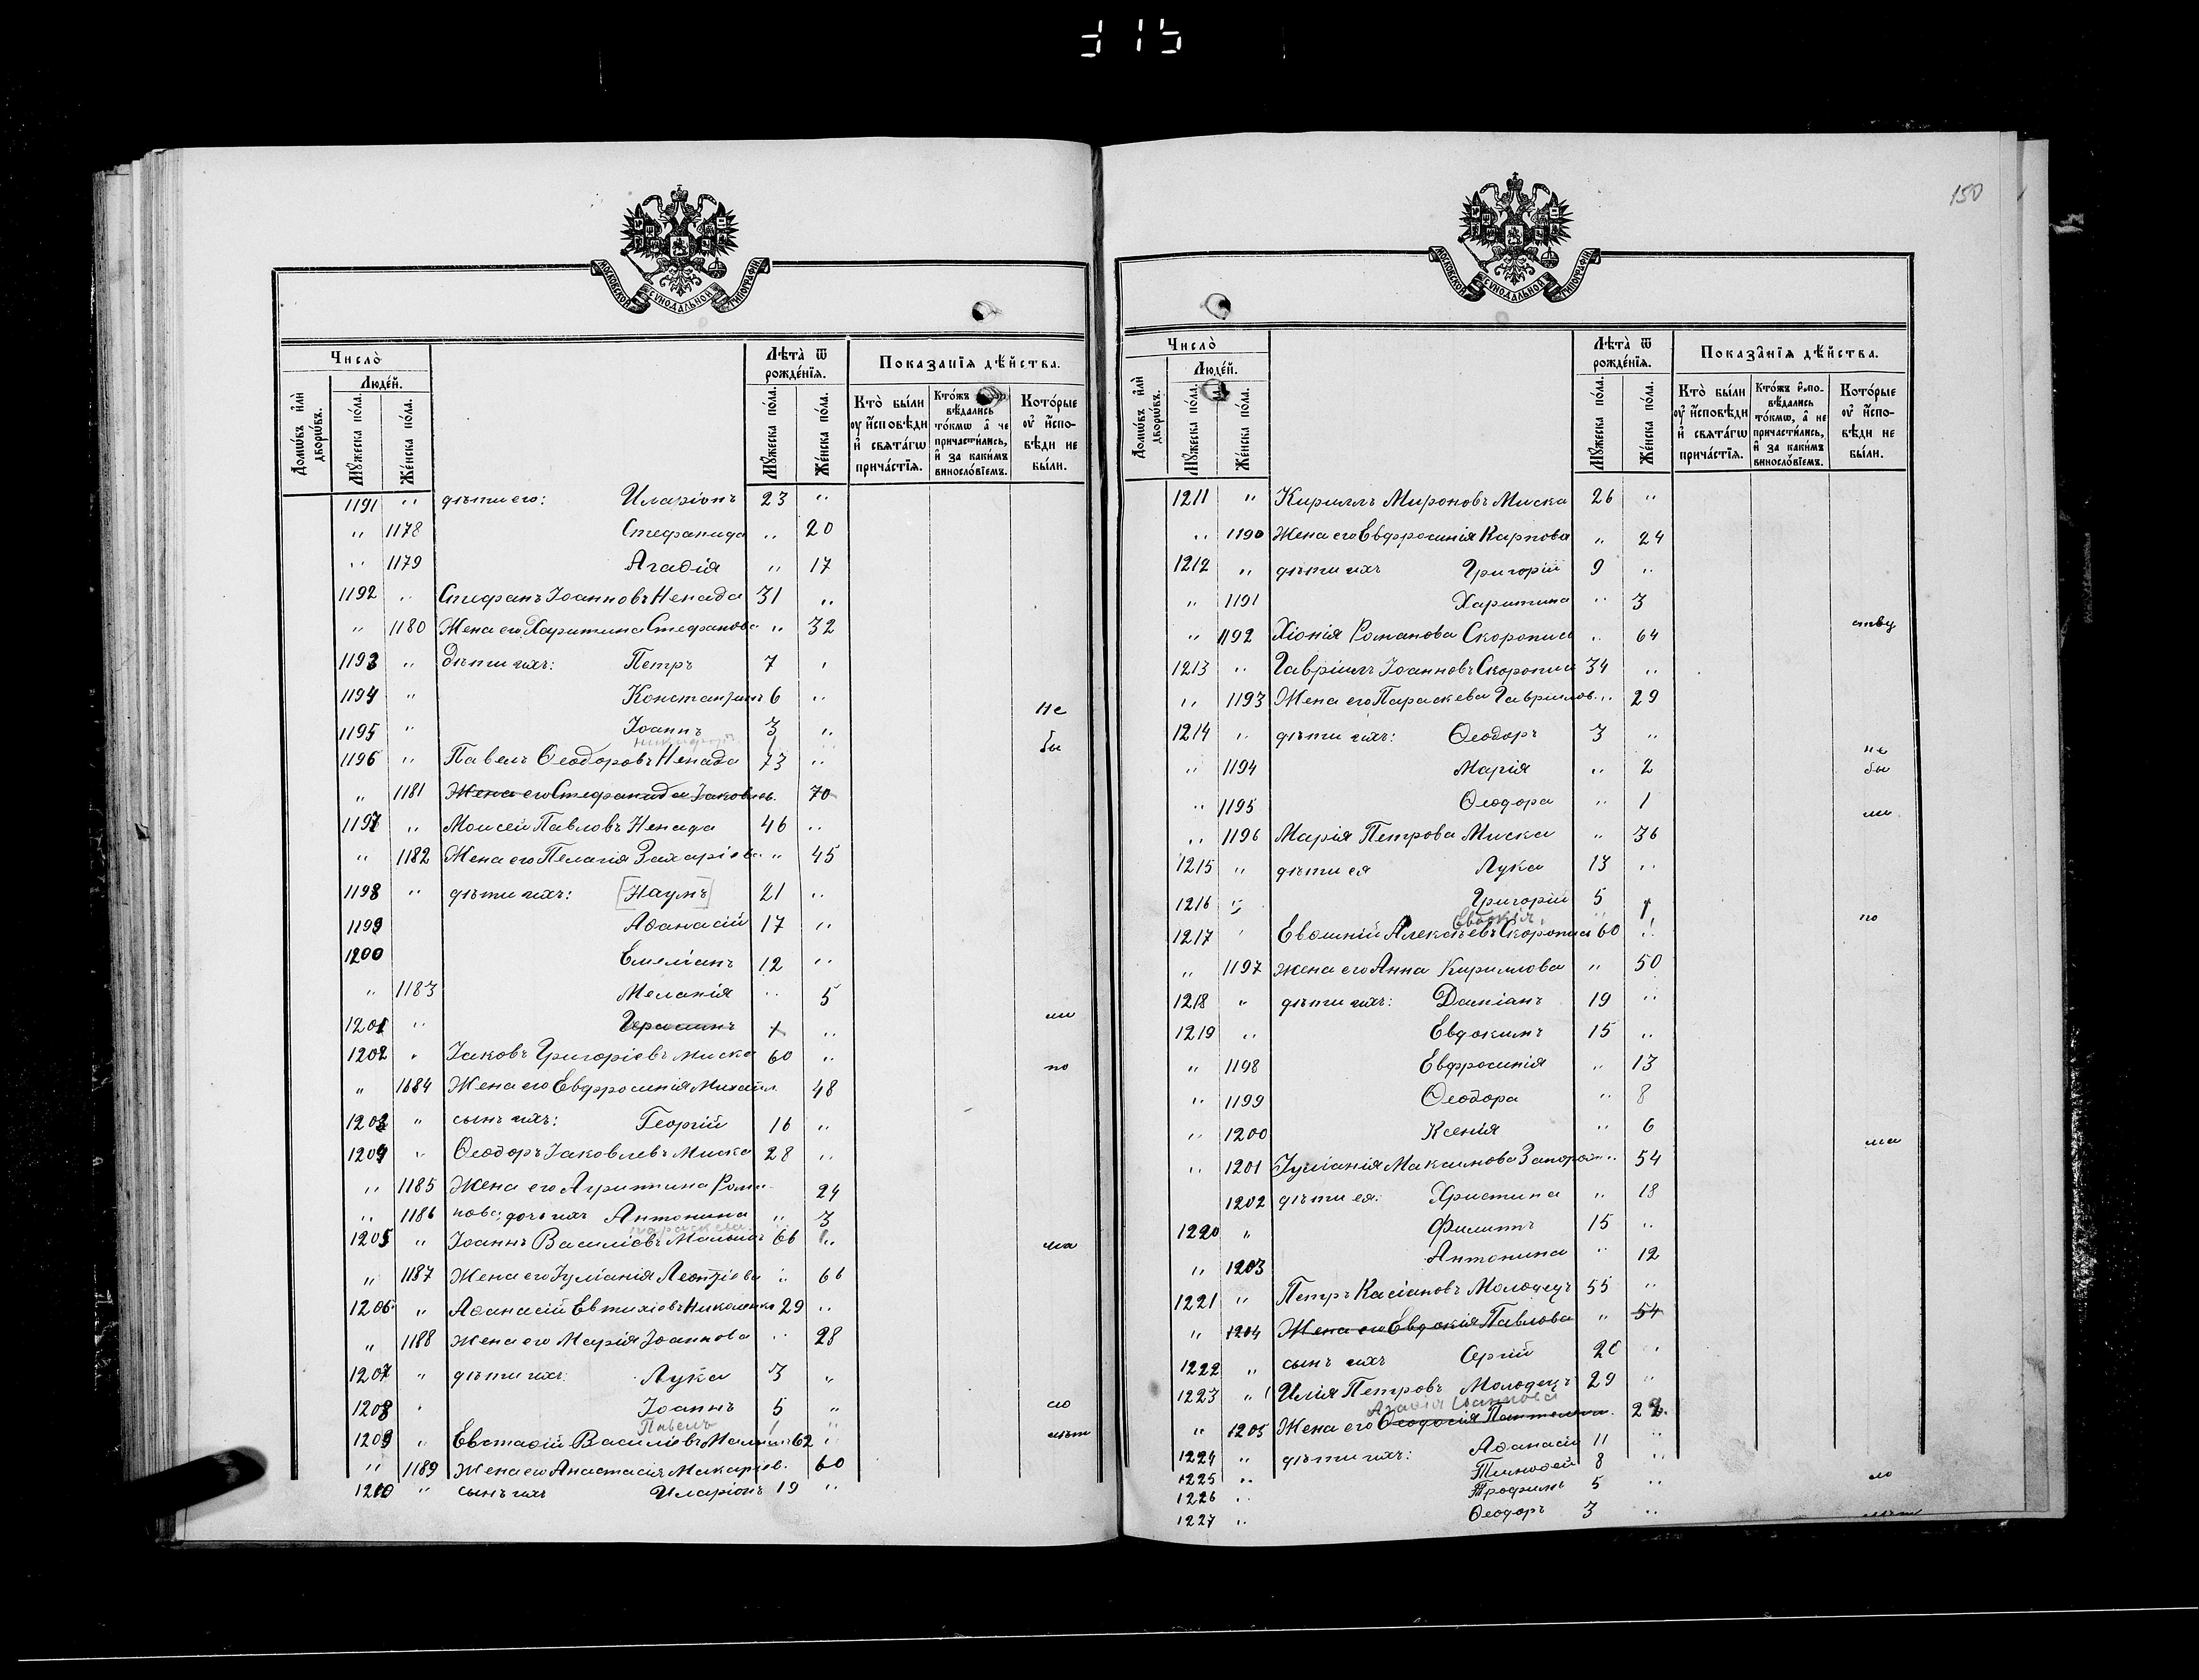 315
150
МОСКОВСКОЙ СУНОДАЛЬНОЙ ТИПОГРАФІИ
Число̀
Людéй.
Домѡ́въ и҆лѝ дворѡ́въ.
Мꙋ́жеска по́ла.
Же́нска по́ла.
Лѣ́та ѿ рожде́нїѧ.
Мꙋ́жеска по́ла.
Же́нска по́ла.
Показа́нїѧ дѣ́йства.
Кто̀ бы́ли ᲂу҆ и҆сповѣ́ди и҆ свѧта́гѡ прича́стїѧ.
Кто́жъ вѣ́дались то́кмѡ а҆ не причасти́лись, и҆ за каки́мъ винословїемъ.
Кото́рые ᲂу҆ и҆спо-вѣ́ди не бы́ли.
1191 " дѣти его: Иларіонъ 23 "
" 1178 Стефанида " 20
" 1179 Агафія " 17
1192 " Стефанъ Іоанновъ Ненада 31 "
" 1180 Жена его Харитина Стефанова " 32
1193 " дѣти ихъ: Петръ 7 "
1194 " Константинъ 6 "
не
1195 " Іоаннъ 3 "
Никифоръ 1
бы
1196 " Павелъ Ѳеодоровъ Ненада 73 "
" 1181 Жена его Стефанида Іаковлев. 70
1197 " Моисей Павловъ Ненада 46 "
" 1182 Жена его Пелагія Захаріева " 45
1198 " дѣти ихъ: [Наумъ] 21 "
1199 Аѳанасій 17 "
1200 Емеліанъ 12 "
" 1183 Меланія " 5
ли
1201 " Герасимъ "
1202 " Іаковъ Григоріевъ Миска 60 "
по
" 1684 Жена его Евфросинія Михаил. 48
1203 " сынъ ихъ: Георгій 16 "
1204 " Ѳеодоръ Іаковлевъ Миска 28 "
" 1185 Жена его Агриппина Рома- 24
" 1186 нова; дочь ихъ Антонина " 3
Параскева 1
1205 " Іоаннъ Василіевъ 66 "
ма
" 1187 Жена его Іуліанія Леонтіева " 66
1206 " Аѳанасій Евтихіевъ Николенко 29 "
" 1188 Жена его Марія Іоаннова " 28
1207 " дѣти ихъ: Лука 3 "
1208 " Іоаннъ 5 "
ло
Павелъ 1 "
1209 " Евстаѳій Василіевъ 62 "
лѣт
" 1189 Жена его Анастасія Макаріев. 60
1210 " сынъ ихъ Иларіонъ 19 "
Число̀
Людéй.
Домѡ́въ и҆лѝ дворѡ́въ.
Мꙋ́жеска по́ла.
Же́нска по́ла.
Лѣ́та ѿ рожде́нїѧ.
Мꙋ́жеска по́ла.
Же́нска по́ла.
Показа́нїѧ дѣ́йства.
Кто̀ бы́ли ᲂу҆ и҆сповѣ́ди и҆ свѧта́гѡ прича́стїѧ.
Кто́жъ и҆спо-вѣ́дались то́кмѡ, а҆ не причасти́лись, и҆ за каки́мъ винословїемъ.
Кото́рые ᲂу҆ и҆спо-вѣ́ди не бы́ли.
1211 " Кириллъ Мироновъ Миска 26 "
" 1190 Жена его Евфросинія Карпова " 24
1212 " дѣти ихъ Григорій 9 "
" 1191 Харитина " 3
ству
" 1192 Хіонія Романова Скоропись " 64
1213 " Гавріилъ Іоанновъ Скоропись 34 "
" 1193 Жена его Параскева Гавриилов. " 29
1214 " дѣти ихъ: Ѳеодоръ 3 "
не
" 1194 Марія " 2
бы
" 1195 Ѳеодора " 1
ли
" 1196 Марія Петрова Миска " 36
1215 " дѣти ея Лука 13 "
1216 " Григорій 5 "
Евдокія " 1
по
1217 " Евѳимій Алексѣевъ Скоропись 60 "
" 1197 жена его Анна Кириллова " 50
1218 " дѣти ихъ: Даміанъ 19 "
1219 " Евдокимъ 15 "
" 1198 Евфросинія " 13
" 1199 Ѳеодора " 8
" 1200 Ксенія " 6
ма
" 1201 Іуліанія Максимова " 54
1202 дѣти ея: Христина " 18
1220 " Филиппъ 15 "
" 1203 Антонина " 12
1221 " Петръ Касіановъ Молодецъ 55 "
" 1204 Жена его Евдокія Павлова " 54
1222 " сынъ ихъ Сергій 20 "
1223 " Илія Петровъ Молодецъ 29 "
Агафія Іоаннова
" 1205 Жена его Ѳеодосія 28
1224 " дѣти ихъ: Аѳанасій 11 "
1225 " Тимоѳей 8 "
ло
1226 " Трофимъ 5 "
1227 " Ѳеодоръ 3 "
лѣт